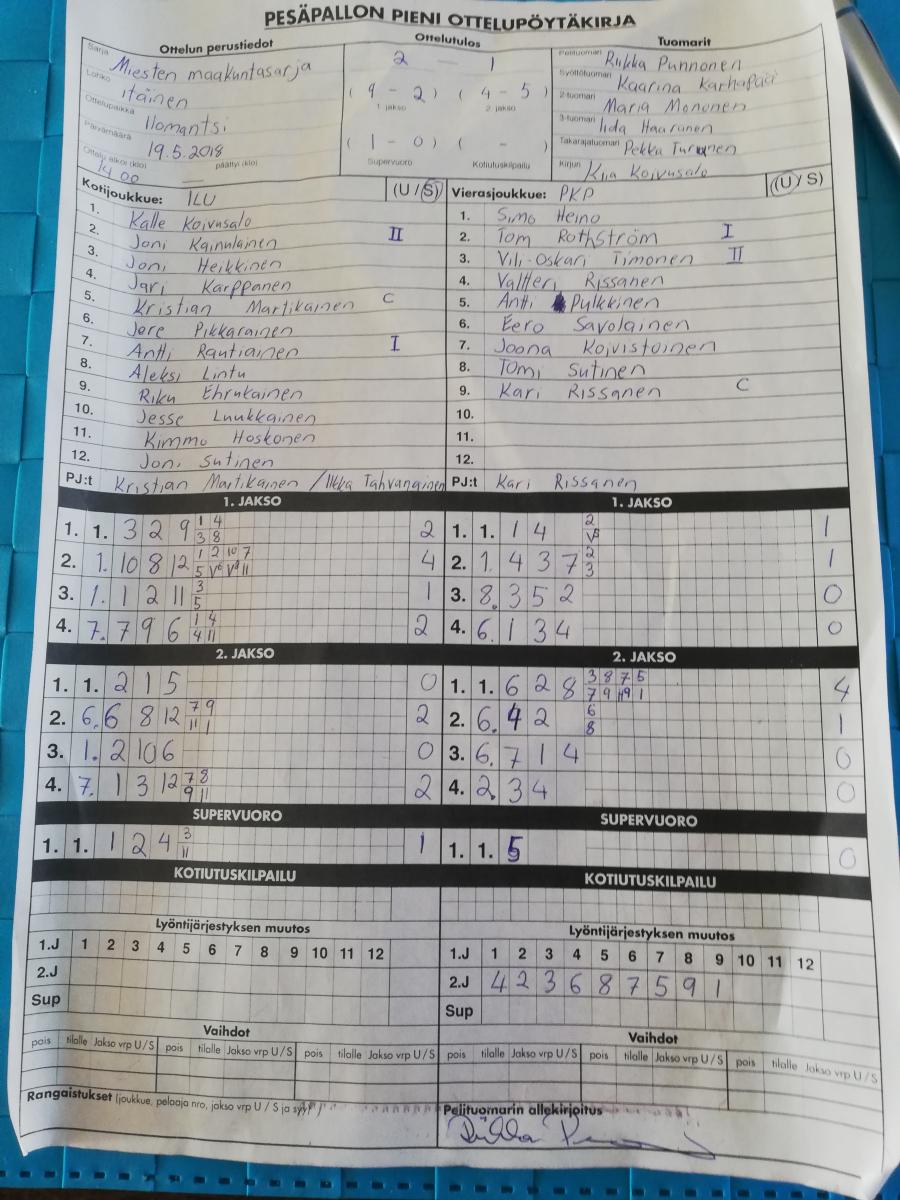 PESÄPALLON PIENI OTTELUPÖYTÄKIRJA
Ottelun perustiedot
Sarja Miesten maakuntasarja
Lohko itäinen
Ottelupaikka Ilomantsi
Päivämäärä 19.5.2018
Ottelu alkoi (klo) 14.00 päättyi (klo) —
Ottelutulos
2 — 1
( 9 - 2 ) ( 4 - 5 )
1. jakso 2. jakso
( 1 - 0 ) ( - )
Supervuoro Kotiutuskilpailu
Tuomarit
Pelituomari Riikka Punnonen
Syöttötuomari Kaarina Karhapää
2-tuomari Maria Mononen
3-tuomari Iida Haaranen
Takarajatuomari Pekka Turunen
Kirjuri Kiia Koivusalo
Kotijoukkue: ILU (U / S)
1. Kalle Koivusalo
2. Joni Kainulainen II
3. Joni Heikkinen
4. Jari Karppanen
5. Kristian Martikainen C
6. Jere Pikkarainen
7. Antti Rautiainen I
8. Aleksi Lintu
9. Riku Ehrukainen
10. Jesse Luukkainen
11. Kimmo Hoskonen
12. Joni Sutinen
PJ:t Kristian Martikainen / Ilkka Tahvanainen
Vierasjoukkue: PKP (U / S)
1. Simo Heino
2. Tom Rothström I
3. Vili-Oskari Timonen II
4. Valtteri Rissanen
5. Antti Pulkkinen
6. Eero Savolainen
7. Joona Koivistoinen
8. Tomi Sutinen
9. Kari Rissanen C
10.
11.
12.
PJ:t Kari Rissanen
1. JAKSO
1. 1. 3 2 9 1 4 2
3 8
2. 1. 10 8 12 1 2 10 7 4
5 V6 V8 11
3. 1. 1 2 11 3 1
5
4. 7. 7 9 6 1 4 2
4 11
2. JAKSO
1. 1. 2 1 5 0
2. 6. 6 8 12 7 9 2
11 1
3. 1. 2 10 6 0
4. 7. 1 3 12 7 8 2
9 11
SUPERVUORO
1. 1. 1 2 4 3 1
11
KOTIUTUSKILPAILU
Lyöntijärjestyksen muutos
1.J 1 2 3 4 5 6 7 8 9 10 11 12
2.J
Sup
Vaihdot
pois tilalle Jakso vrp U / S pois tilalle Jakso vrp U / S pois tilalle Jakso vrp U / S
Rangaistukset (joukkue, pelaaja nro, jakso vrp U / S ja syy)
1. JAKSO
1. 1. 1 4 2 1
V5
2. 1. 4 3 7 2 1
3
3. 8. 3 5 2 0
4. 6. 1 3 4 0
2. JAKSO
1. 1. 6 2 8 3 8 7 5 4
7 9 9 1
2. 6. 4 2 6 1
8
3. 6. 7 1 4 0
4. 2. 3 4 0
SUPERVUORO
1. 1. 5 0
KOTIUTUSKILPAILU
Lyöntijärjestyksen muutos
1.J 1 2 3 4 5 6 7 8 9 10 11 12
2.J 4 2 3 6 8 7 5 9 1
Sup
Vaihdot
pois tilalle Jakso vrp U / S pois tilalle Jakso vrp U / S pois tilalle Jakso vrp U / S
Pelituomarin allekirjoitus